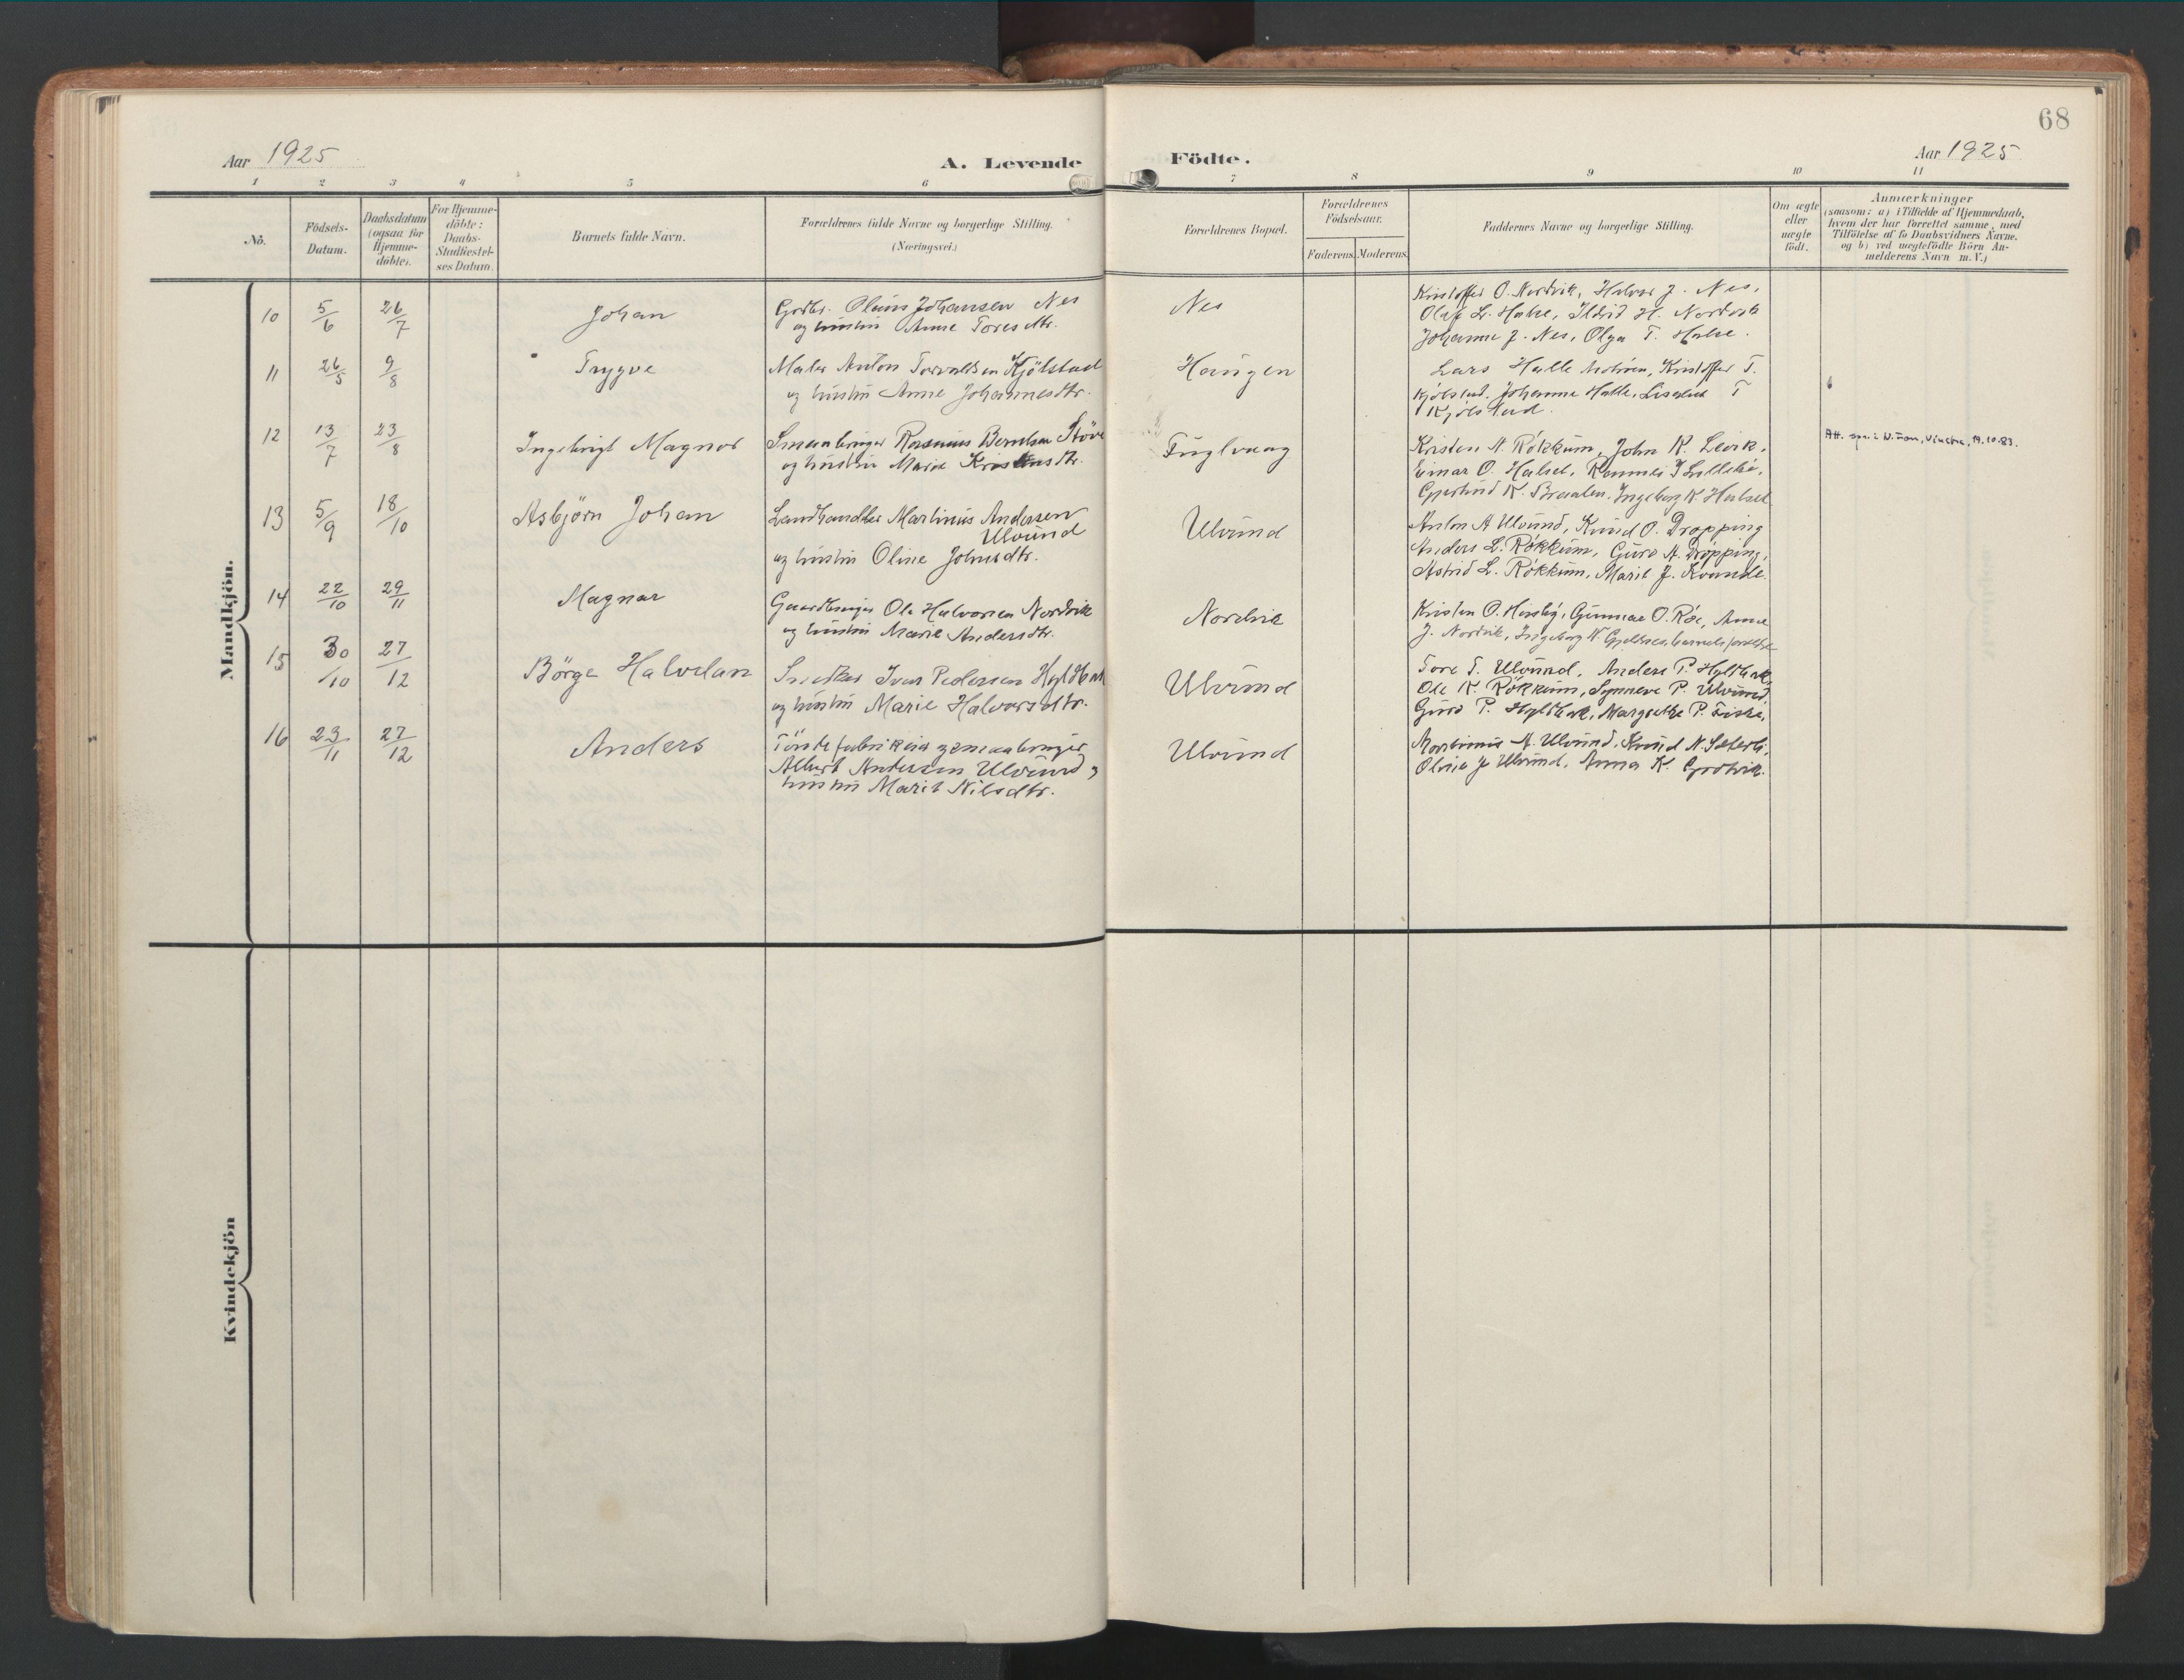 68
Aar 1925
A. Levende Födte.
Aar 1925
1 2 3 4 5 6 7 8 9 10 11
No.
Födsels-Datum.
Daabsdatum (ogsaa for Hjemme-döbte).
For Hjemme-döbte: Daabs-Stadfæstel-ses Datum.
Barnets fulde Navn.
Forældrenes fulde Navne og borgerlige Stilling. (Næringsvei.)
Forældrenes Bopæl.
Forældrenes Födselsaar.
Faderens. Moderens.
Faddernes Navne og borgerlige Stilling.
Om ægte eller uægte födt.
Anmærkninger
(saasom: a) i Tilfælde af Hjemmedaab,
hvem der har forrettet samme, med
Tilföielse af to Daabsvidners Navne,
og b) ved uægtefödte Börn An-
melderens Navn m. V.)
Mandkjön.
10 5/6 26/7 Johan
Grdbr. Olaus Johansen Nes
og hustru Anne Toresdtr.
Nes
Kristoffer O. Nordvik, Halvor J. Nes,
Olaf L. Halse, Ildrid H. Nordvik
Johanna J. Nes, Olga T. Halse.
11 26/5 9/8 Trygve
Maler Anton Torvaldsen Kjölstad
og hustru Anne Johannesdtr.
Haugen
Lars Halle, Kristoffer T.
Kjölstad, Johanna Halle, T
Kjölstad.
12 13/7 23/8 Ingebrigt Magnor
Smaabruger Rasmus Berntsen Stöve
og hustru Marie Kristensdtr.
Fuglvaag
Kristen A. Rökkum, John K. Leirk,
Einar O. Halset,
K. Braaten, Ingeborg K. Halset
Vinstra, 19.10.83.
13 5/9 18/10 Asbjörn Johan
Landhandler Martinus Andersen
Ulvund
og hustru Oline Johnsdtr.
Ulvund
Anton A Ulvund, Knud O. Dropping
Anders L. Rökkum, Guro A. Dropping,
Astrid L. Rökkum, Marit J. Kvande.
14 22/10 29/11 Magnar
Gaardbruger Ole Halvorsen Nordvik
og hustru Marie Andersdtr.
Nordvik
Kristen O. Gunnar O. Röe, Anne
J. Nordvik, Ingeborg N. barnets forældre
15 30/10 27/12 Börge Halvdan
Snedker Ivar Pedersen Hyldbak
og hustru Marie Halvorsdtr.
Ulvund
Tore T. Ulvund, Anders P. Hyldbak,
Ole K. Rökkum, Synneve P. Ulvund,
Guro P. Hyldbak, Margrethe P. Fiske,
16 23/11 27/12 Anders
Töndefabrikeier smaabruger
Albert Andersen Ulvund og
hustru Marit Nilsdtr.
Ulvund
Martinus A. Ulvund, Knud N. Sæterli,
Oline J. Ulvund, Anna K. Grötvik.
Kvindekjön